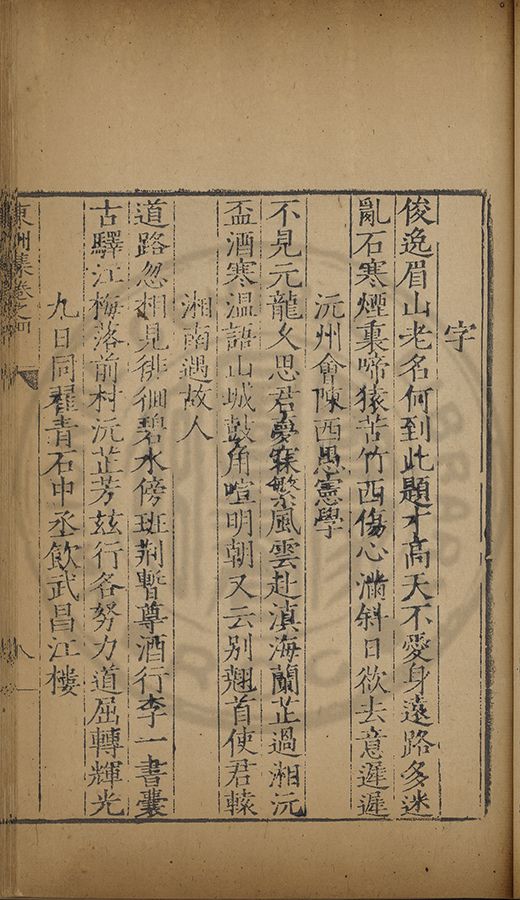 字
俊逸眉山老名何到此題才高天不愛身遠路多迷
亂石寒煙裏啼猿苦竹西傷心滿斜日欲去意遲遲
沅州會陳西愚憲學
不見元龍久思君夢寐繁風雲赴滇海蘭芷過湘沅
盃酒寒溫語山城鼓角喧明朝又云別翹首使君轅
湘南遇故人
道路忽相見徘徊碧水傍班荆暫尊酒行李一書囊
古驛江梅落前村沅芷芳兹行各努力道屈轉輝光
九日同翟青石中丞飲武昌江樓
東洲集卷之四
八